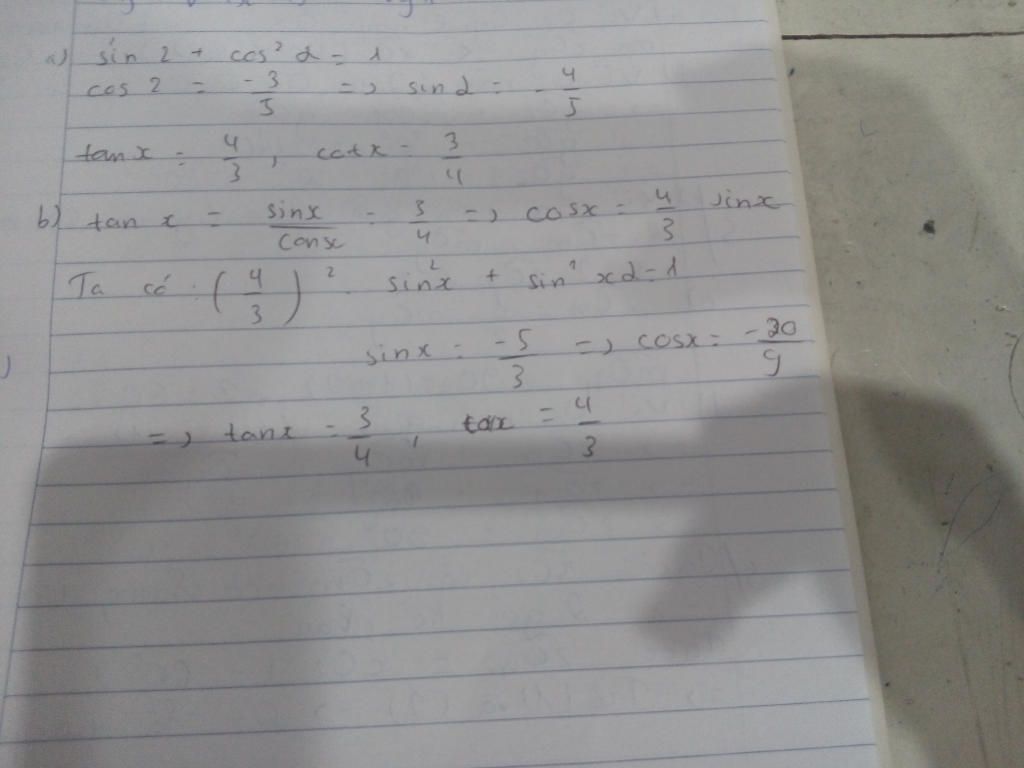 a) sin 2 + cos² α = 1
cos 2 = -3/5 => sin α = - 4/5
tan x = 4/3, cotx = 3/4
b) tan x = sinx/consx = 3/4 => cosx = 4/3 sinx
Ta có: (4/3)². sin²x + sin² xα = 1
sinx = -5/3 => cosx = -20/9
=> tanx = 3/4, tax = 4/3